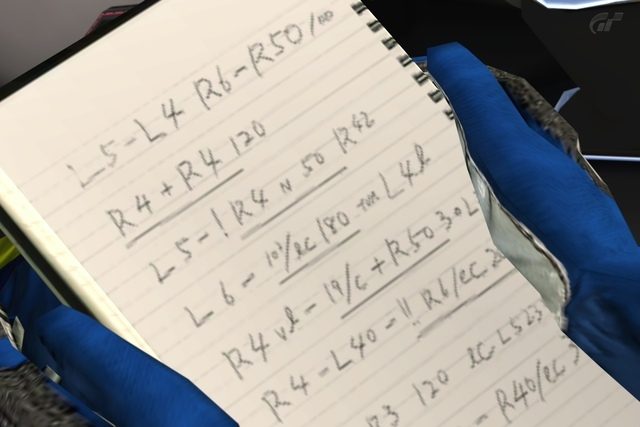 L5-L4 R6-R50/100
R4+R4 120
L5-! R4 N 50 R42
L6- 10%/LC 180 TVM L4l
R4 vl- 19/C+R50 30L
R4-L40-!! R6/LC 2
R3 120 LC L523
- R40/LC 3
GT